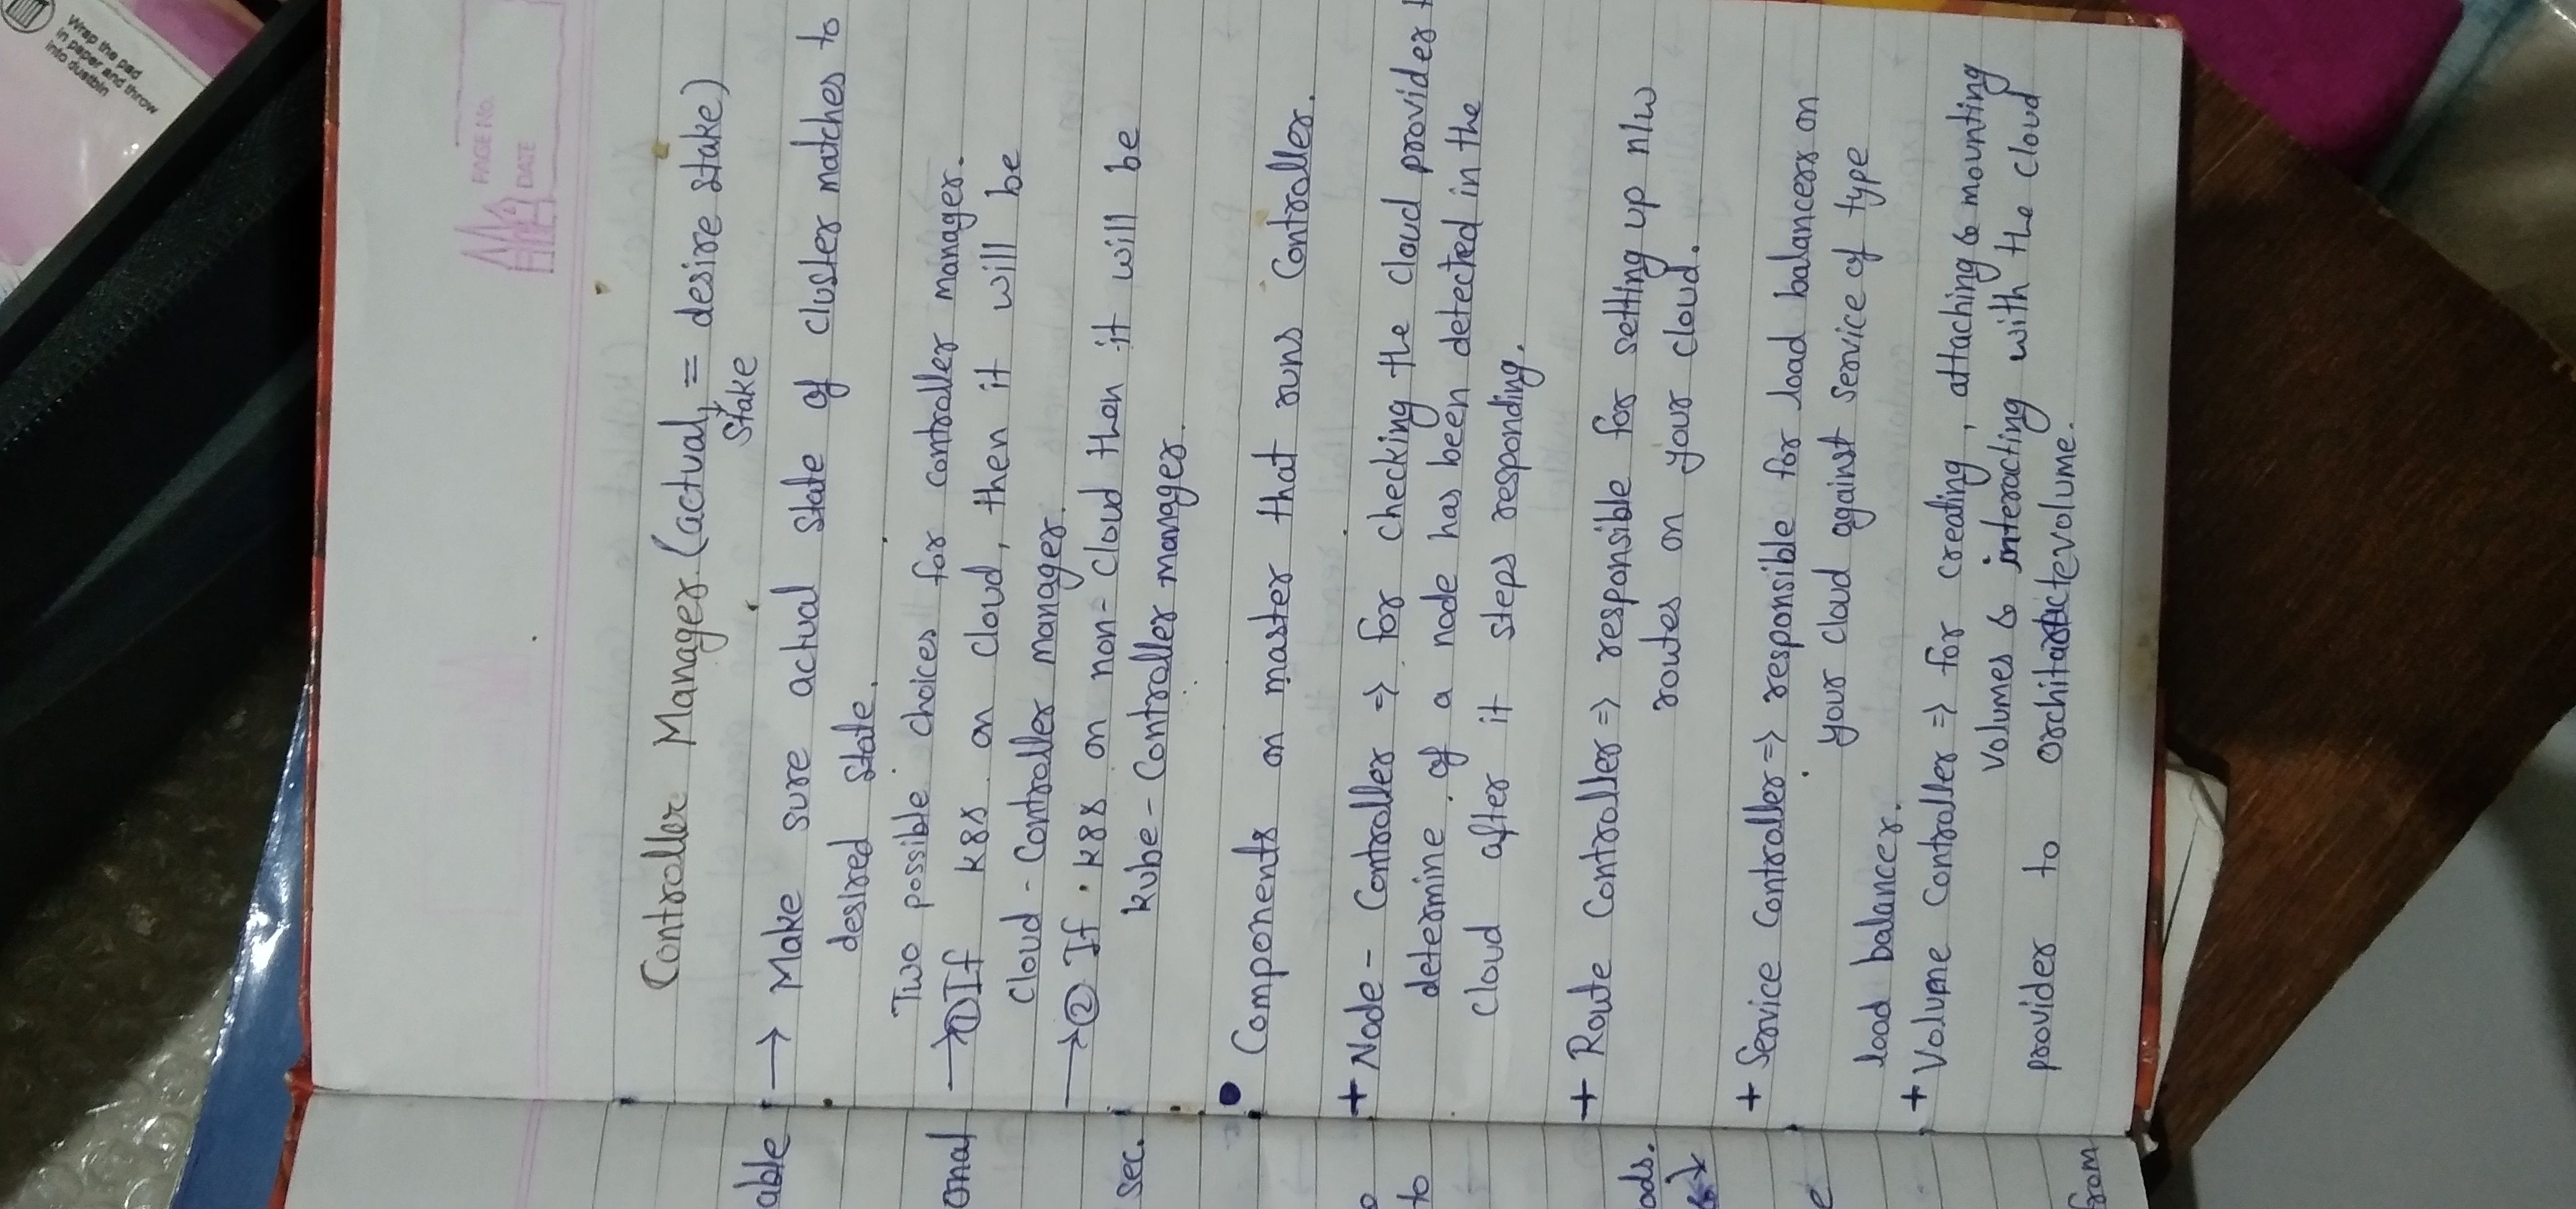 Wrap the pad
in paper and throw
into dustbin
PAGE No.
DATE
Controller Manager (actual, = desire stake)
Stake
able
→ Make sure actual state of cluster matches to
desired state.
Two possible choices for controller manager.
onal
→ ① If k8s on cloud, then it will be
Cloud - Controller manager.
→ ② If k8s on non-cloud then it will be
sec.
kube - Controller manager.
• Components on master that runs Controller.
+ Node - Controller ⇒ for checking the cloud provider
to
determine of a node has been detected in the
cloud after it steps responding.
+ Route Controller ⇒ responsible for setting up n/w
ods.
routes on your cloud.
+ Service Controller ⇒ responsible for load balancers on
e
your cloud against service of type
load balancer.
+ Volume Controller ⇒ for creating, attaching & mounting
Volumes & interacting with the cloud
provider to volume.
from